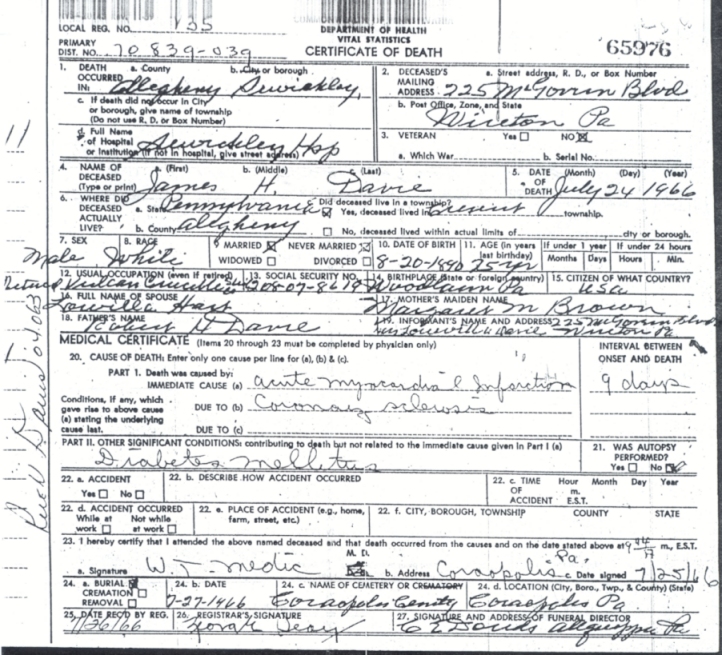 LOCAL REG. NO. 135
DEPARTMENT OF HEALTH
VITAL STATISTICS
PRIMARY DIST. NO. 70839-039
CERTIFICATE OF DEATH
65976
1. DEATH OCCURRED IN: a. County b. City or borough
Allegheny Sewickley
c. If death did not occur in City or borough, give name of township (Do not use R, D, or Box Number)
d. Full Name of Hospital or Institution (If not in hospital, give street address)
Sewickley Hsp
2. DECEASED'S MAILING ADDRESS a. Street address, R. D., or Box Number
225 McGovrin Blvd
b. Post Office, Zone, and State
Wireton Pa
3. VETERAN Yes No
a. Which War b. Serial No.
4. NAME OF DECEASED (Type or print) a. (First) b. (Middle) c. (Last)
James H. Davie
5. DATE OF DEATH (Month) (Day) (Year)
July 24 1966
6. WHERE DID DECEASED ACTUALLY LIVE? a. State Pennsylvania Did deceased live in a township?
Yes, deceased lived in township.
b. County Allegheny No, deceased lived within actual limits of city or borough.
7. SEX 8. RACE 9. MARRIED NEVER MARRIED WIDOWED DIVORCED
Male White
10. DATE OF BIRTH 11. AGE (in years last birthday) If under 1 year If under 24 hours
Months Days Hours Min.
8-20-1890 75 yr
12. USUAL OCCUPATION (even if retired) 13. SOCIAL SECURITY NO. 14. BIRTHPLACE (State or foreign country) 15. CITIZEN OF WHAT COUNTRY?
Retired Vulcan Crucible 208-07-8619 Woodlawn Pa USA
16. FULL NAME OF SPOUSE 17. MOTHER'S MAIDEN NAME
Hart Margaret M Brown
18. FATHER'S NAME 19. INFORMANT'S NAME AND ADDRESS
Robert H Davie 225 McGovrin Blvd
Davie Wireton Pa
MEDICAL CERTIFICATE (Items 20 through 23 must be completed by physician only)
INTERVAL BETWEEN ONSET AND DEATH
20. CAUSE OF DEATH: Enter only one cause per line for (a), (b) & (c).
PART 1. Death was caused by:
IMMEDIATE CAUSE (a) acute myocardial Infarction 9 days
Conditions, if any, which gave rise to above cause (a) stating the underlying cause last.
DUE TO (b) Coronary sclerosis
DUE TO (c)
PART II. OTHER SIGNIFICANT CONDITIONS: contributing to death but not related to the immediate cause given in Part I (a)
Diabetes mellitus
21. WAS AUTOPSY PERFORMED?
Yes No
22. a. ACCIDENT Yes No
22. b. DESCRIBE HOW ACCIDENT OCCURRED
22. c. TIME OF ACCIDENT Hour Month Day Year
m.
E.S.T.
22. d. ACCIDENT OCCURRED While at work Not while at work
22. e. PLACE OF ACCIDENT (e.g., home, farm, street, etc.)
22. f. CITY, BOROUGH, TOWNSHIP COUNTY STATE
23. I hereby certify that I attended the above named deceased and that death occurred from the causes and on the date stated above at m., E.S.T.
M. D. Pa.
a. Signature W. T. Medic b. Address Coraopolis c. Date signed 7/25/66
24. a. BURIAL CREMATION REMOVAL
24. b. DATE
7-27-1966
24. c. NAME OF CEMETERY OR CREMATORY
Coraopolis Cemty
24. d. LOCATION (City, Boro., Twp., & County) (State)
Coraopolis Pa
25. DATE REC'D BY REG.
7/26/66
26. REGISTRAR'S SIGNATURE
27. SIGNATURE AND ADDRESS OF FUNERAL DIRECTOR
Aliquippa Pa